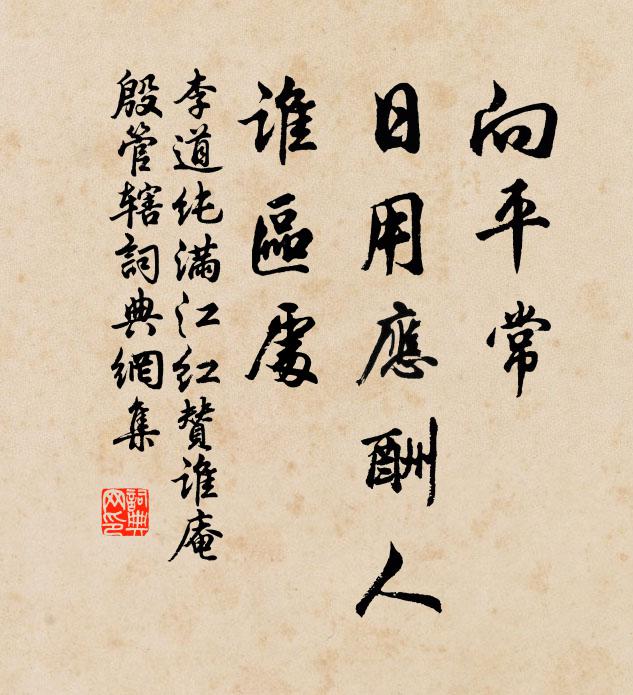 向平常
日用應酬人
誰區處
李道純滿江紅贊誰庵
殷管轄詞典網集
詞典网印